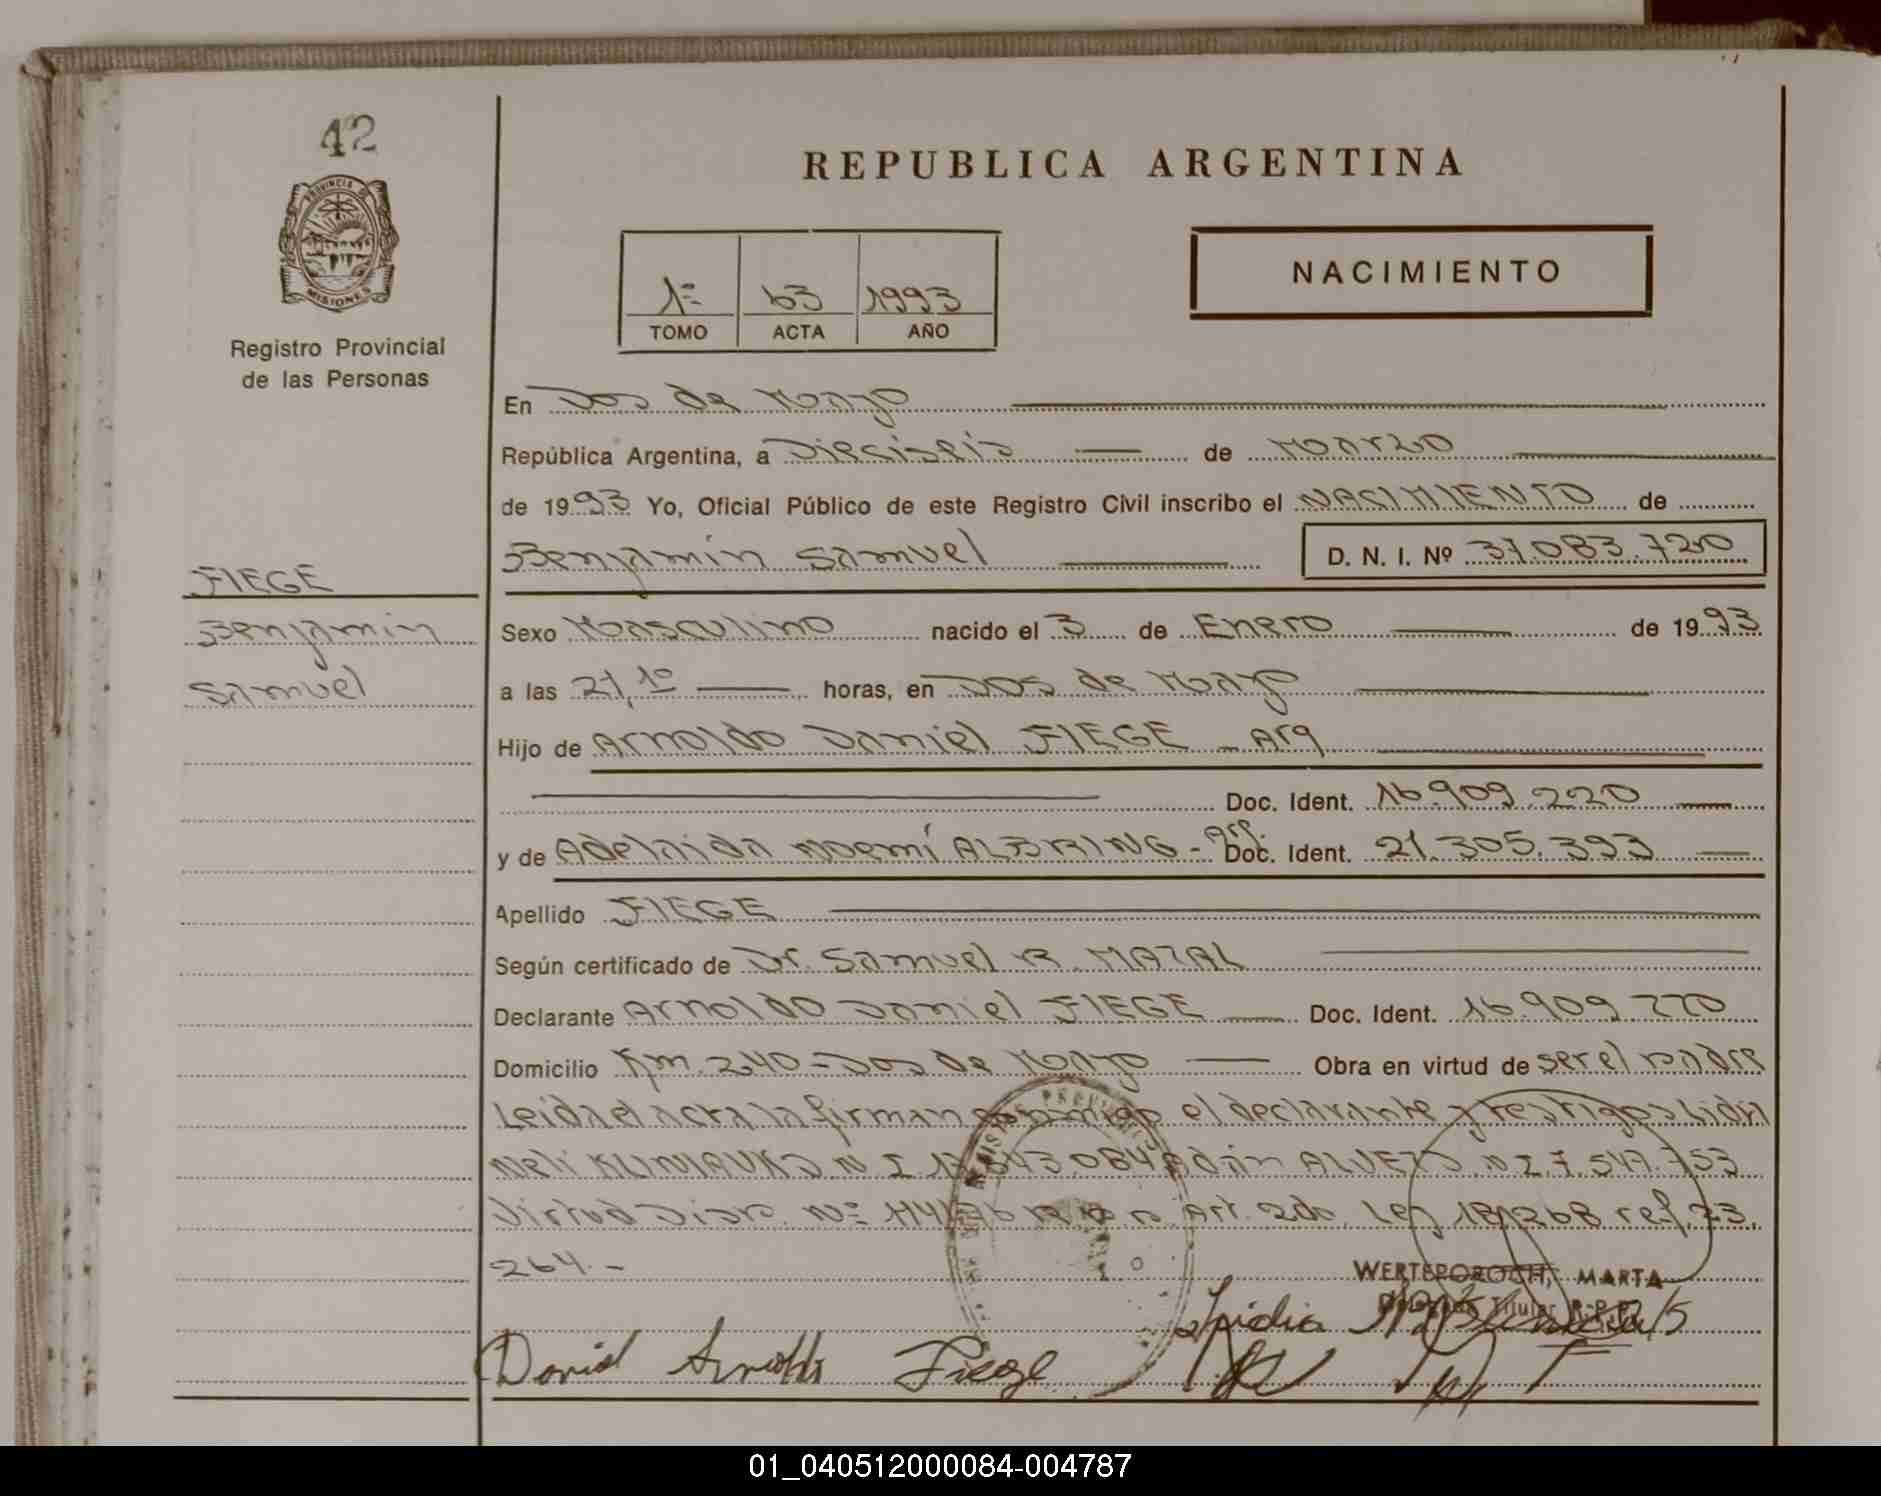 42
PROVINCIA DE
MISIONES
Registro Provincial
de las Personas
FIEGE
Benjamin
Samuel
REPUBLICA ARGENTINA
NACIMIENTO
1º 63 1993
TOMO ACTA AÑO
En Dos de Mayo
República Argentina, a Dieciseis de Marzo
de 1993 Yo, Oficial Público de este Registro Civil inscribo el NACIMIENTO de
Benjamin Samuel D. N. I. Nº 37.083.720
Sexo Masculino nacido el 3 de Enero de 1993
a las 21,10 horas, en Dos de Mayo
Hijo de Arnoldo Daniel FIEGE - Arg
Doc. Ident. 16.909.220
y de Adelaida Noemí ALBRING - Arg. Doc. Ident. 21.305.393
Apellido FIEGE
Según certificado de Dr. Samuel R. MAZAL
Declarante Arnoldo Daniel FIEGE Doc. Ident. 16.909.220
Domicilio Km. 240 - Dos de Mayo Obra en virtud de ser el padre
Leida el acta la firman conmigo el declarante y testigos Lidia
Neli N.I. Adán N.I. 7.547.753
Virtud Disp. Nº Art. 2do. Ley 18.268 ref. 23.
264.-
WERTEPOROCH, MARTA
Titular
Daniel Arnoldo Fiege
Lidia
01_040512000084-004787